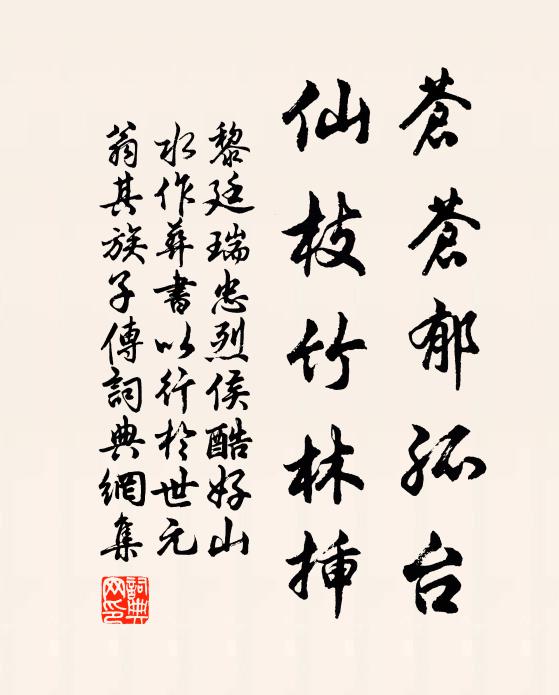 蒼蒼郁孤台
仙枝竹林揷
黎廷瑞忠烈侯酷好山
水作葬書以行於世元
翁其族子傳詞典網集
詞典网印